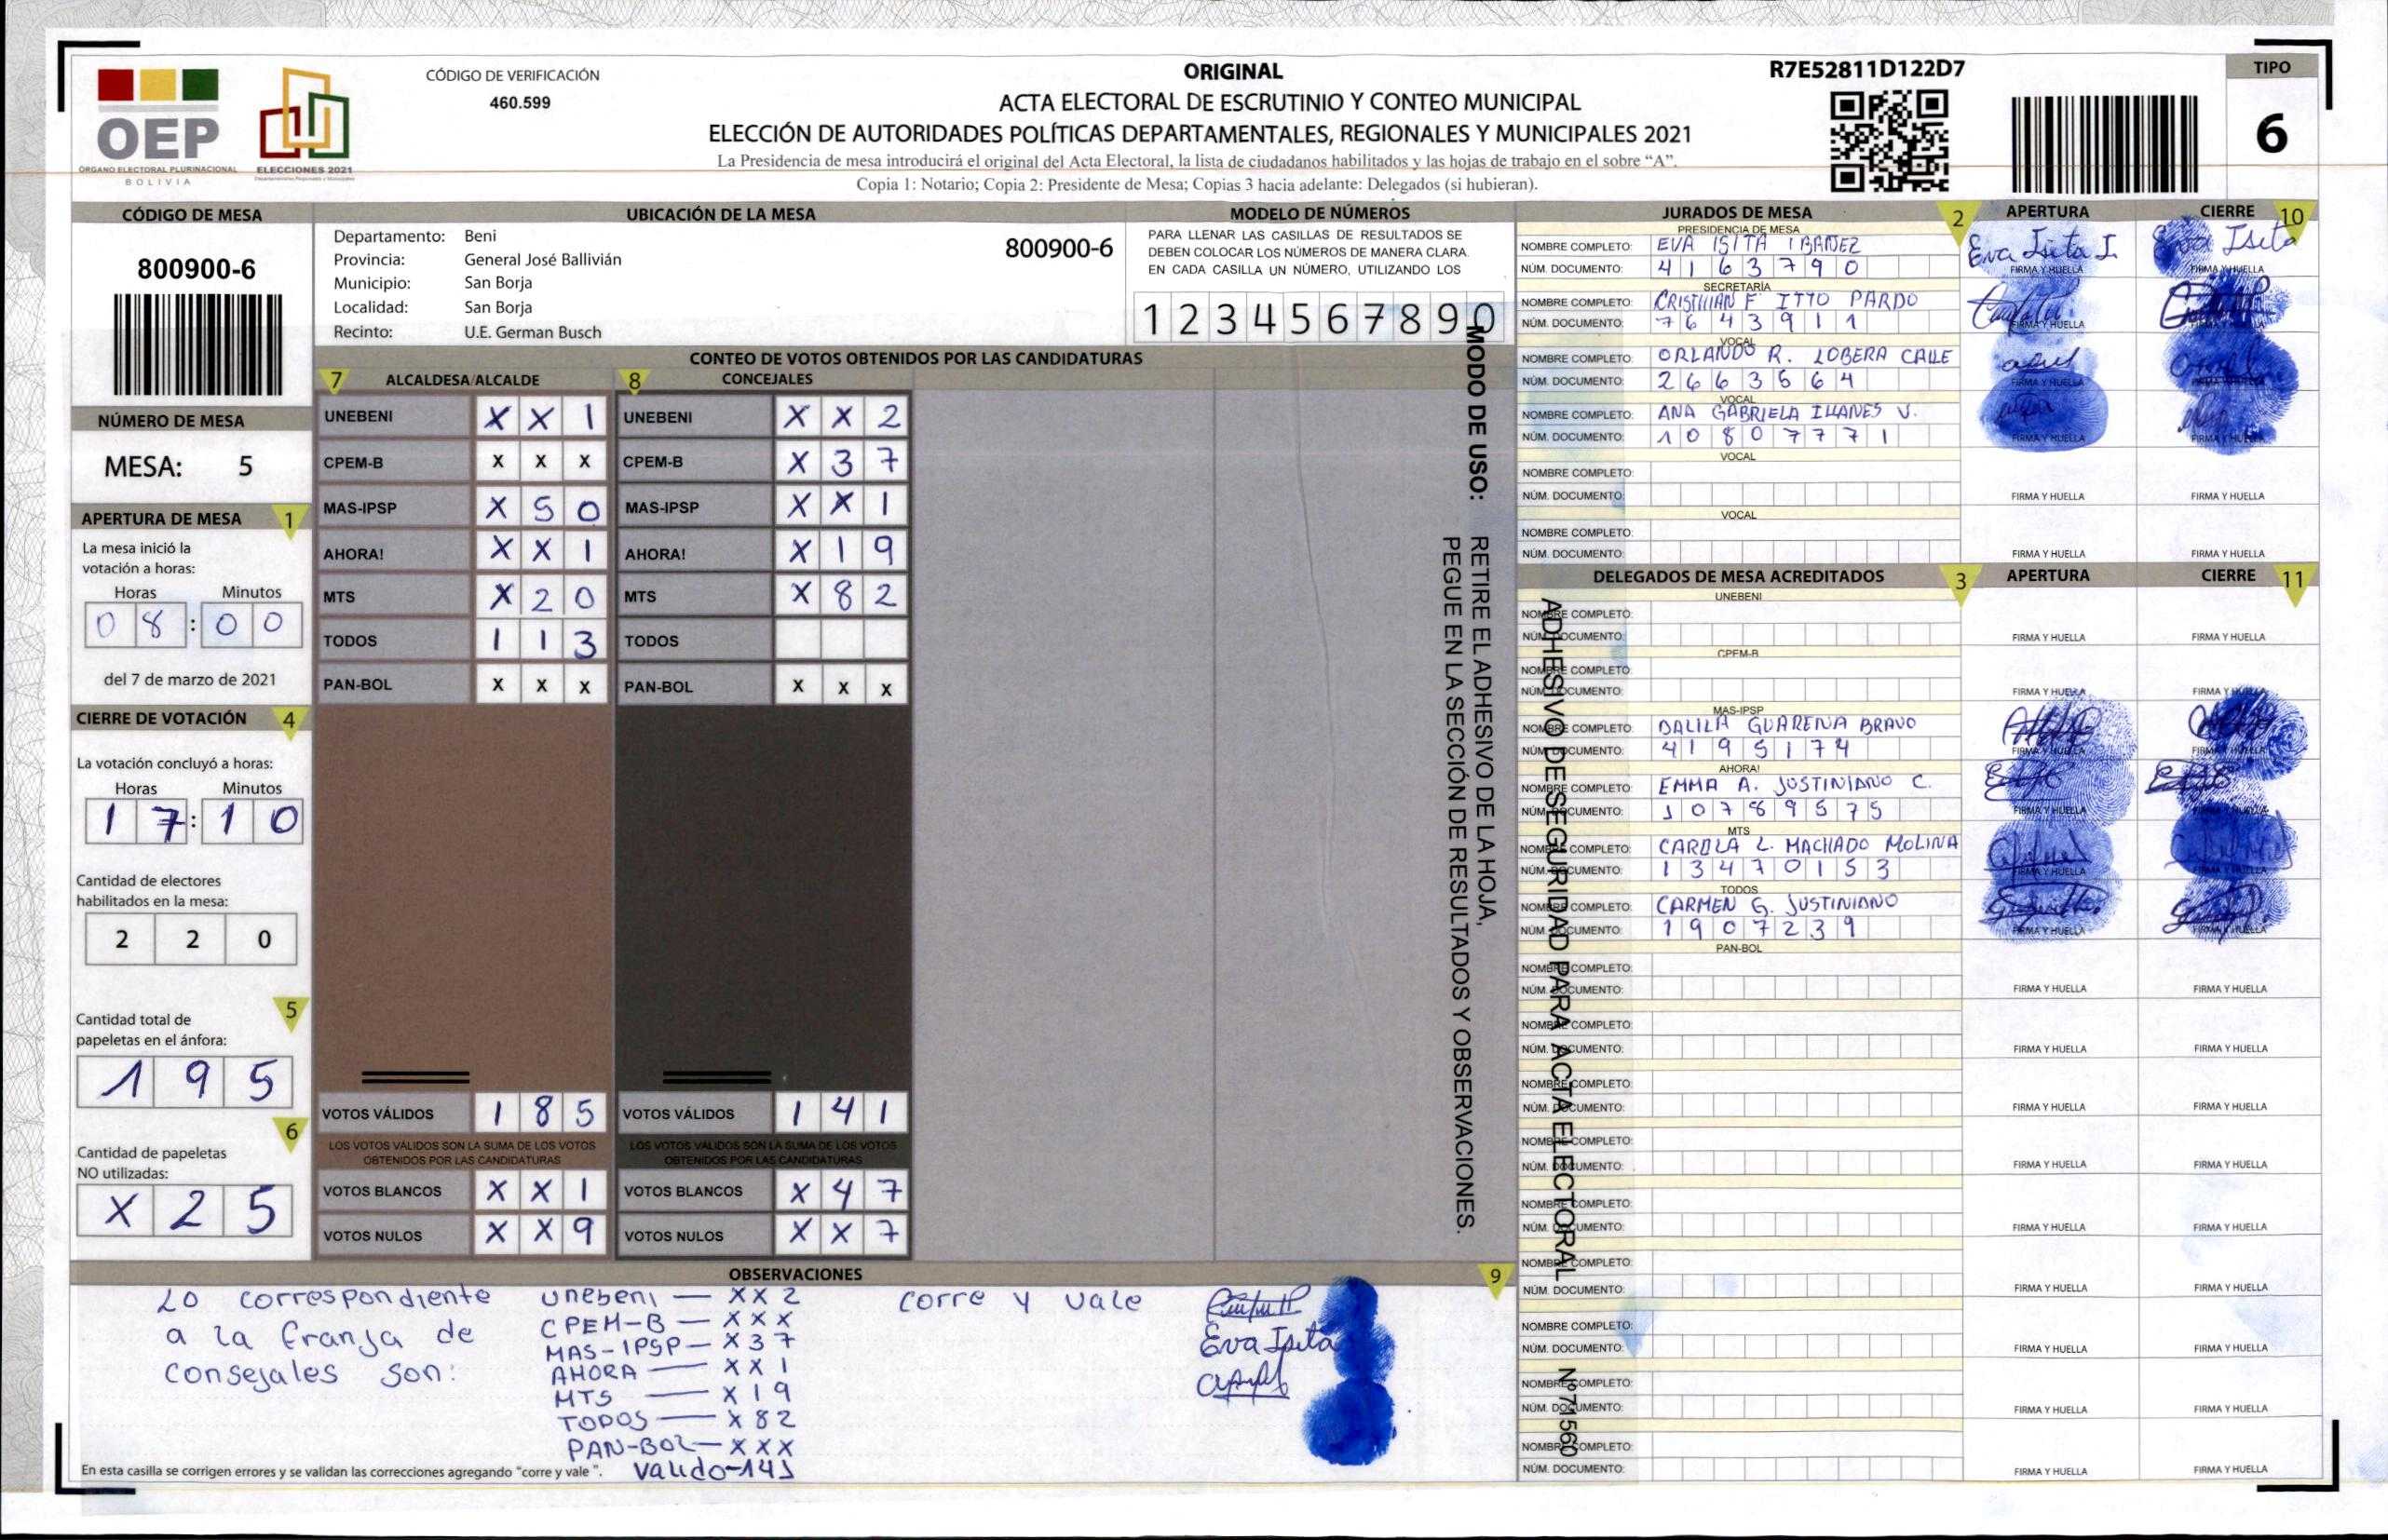 CÓDIGO DE VERIFICACIÓN
460.599
OEP
ÓRGANO ELECTORAL PLURINACIONAL
BOLIVIA
ELECCIONES 2021
ORIGINAL
ACTA ELECTORAL DE ESCRUTINIO Y CONTEO MUNICIPAL
ELECCIÓN DE AUTORIDADES POLÍTICAS DEPARTAMENTALES, REGIONALES Y MUNICIPALES 2021
La Presidencia de mesa introducirá el original del Acta Electoral, la lista de ciudadanos habilitados y las hojas de trabajo en el sobre “A”.
Copia 1: Notario; Copia 2: Presidente de Mesa; Copias 3 hacia adelante: Delegados (si hubieran).
R7E52811D122D7
TIPO
6
CÓDIGO DE MESA
800900-6
NÚMERO DE MESA
MESA: 5
APERTURA DE MESA 1
La mesa inició la
votación a horas:
Horas Minutos
08:00
del 7 de marzo de 2021
CIERRE DE VOTACIÓN 4
La votación concluyó a horas:
Horas Minutos
17:10
Cantidad de electores
habilitados en la mesa:
2 2 0
5
Cantidad total de
papeletas en el ánfora:
1 9 5
6
Cantidad de papeletas
NO utilizadas:
X 2 5
UBICACIÓN DE LA MESA
Departamento: Beni
800900-6
Provincia: General José Ballivián
Municipio: San Borja
Localidad: San Borja
Recinto: U.E. German Busch
MODELO DE NÚMEROS
PARA LLENAR LAS CASILLAS DE RESULTADOS SE
DEBEN COLOCAR LOS NÚMEROS DE MANERA CLARA.
EN CADA CASILLA UN NÚMERO, UTILIZANDO LOS
1 2 3 4 5 6 7 8 9 0
CONTEO DE VOTOS OBTENIDOS POR LAS CANDIDATURAS
7 ALCALDESA/ALCALDE 8 CONCEJALES
UNEBENI X X 1 UNEBENI X X 2
CPEM-B X X X CPEM-B X 3 7
MAS-IPSP X 5 0 MAS-IPSP X X 1
AHORA! X X 1 AHORA! X 1 9
MTS X 2 0 MTS X 8 2
TODOS 1 1 3 TODOS
PAN-BOL X X X PAN-BOL X X X
VOTOS VÁLIDOS 1 8 5 VOTOS VÁLIDOS 1 4 1
LOS VOTOS VÁLIDOS SON LA SUMA DE LOS VOTOS LOS VOTOS VÁLIDOS SON LA SUMA DE LOS VOTOS
OBTENIDOS POR LAS CANDIDATURAS OBTENIDOS POR LAS CANDIDATURAS
VOTOS BLANCOS X X 1 VOTOS BLANCOS X 4 7
VOTOS NULOS X X 9 VOTOS NULOS X X 7
MODO DE USO: RETIRE EL ADHESIVO DE LA HOJA,
PEGUE EN LA SECCIÓN DE RESULTADOS Y OBSERVACIONES.
ADHESIVO DE SEGURIDAD PARA ACTA ELECTORAL Nº 71560
OBSERVACIONES 9
Lo correspondiente
a la franja de
Consejales son:
unebeni — XX2
CPEM-B — XXX
MAS-IPSP — X37
AHORA — XX1
MTS — X19
TODOS — X82
PAN-BOL — XXX
Valido-141
corre y vale
Eva Isita
En esta casilla se corrigen errores y se validan las correcciones agregando "corre y vale ".
JURADOS DE MESA 2 APERTURA CIERRE 10
PRESIDENCIA DE MESA
NOMBRE COMPLETO: EVA ISITA IBAÑEZ
NÚM. DOCUMENTO: 4163790
Eva Isita I.
Eva Isita
FIRMA Y HUELLA FIRMA Y HUELLA
SECRETARÍA
NOMBRE COMPLETO: CRISTHIAN F ITTO PARDO
NÚM. DOCUMENTO: 7643911
FIRMA Y HUELLA FIRMA Y HUELLA
VOCAL
NOMBRE COMPLETO: ORLANDO R. LOBERA CALLE
NÚM. DOCUMENTO: 2663564
FIRMA Y HUELLA
VOCAL
NOMBRE COMPLETO: ANA GABRIELA ILLANES V.
NÚM. DOCUMENTO: 10807771
FIRMA Y HUELLA FIRMA Y HUELLA
VOCAL
NOMBRE COMPLETO:
NÚM. DOCUMENTO:
FIRMA Y HUELLA FIRMA Y HUELLA
VOCAL
NOMBRE COMPLETO:
NÚM. DOCUMENTO:
FIRMA Y HUELLA FIRMA Y HUELLA
DELEGADOS DE MESA ACREDITADOS 3 APERTURA CIERRE 11
UNEBENI
NOMBRE COMPLETO:
NÚM. DOCUMENTO:
FIRMA Y HUELLA FIRMA Y HUELLA
CPEM-B
NOMBRE COMPLETO:
NÚM. DOCUMENTO:
FIRMA Y HUELLA FIRMA Y HUELLA
MAS-IPSP
NOMBRE COMPLETO: DALILA GUARENA BRAVO
NÚM. DOCUMENTO: 4195174
FIRMA Y HUELLA FIRMA Y HUELLA
AHORA!
NOMBRE COMPLETO: EMMA A. JUSTINIANO C.
NÚM. DOCUMENTO: 10789575
FIRMA Y HUELLA FIRMA Y HUELLA
MTS
NOMBRE COMPLETO: CAROLA L. MACHADO MOLINA
NÚM. DOCUMENTO: 13470153
FIRMA Y HUELLA FIRMA Y HUELLA
TODOS
NOMBRE COMPLETO: CARMEN G. JUSTINIANO
NÚM. DOCUMENTO: 1907239
FIRMA Y HUELLA FIRMA Y HUELLA
PAN-BOL
NOMBRE COMPLETO:
NÚM. DOCUMENTO:
FIRMA Y HUELLA FIRMA Y HUELLA
NOMBRE COMPLETO:
NÚM. DOCUMENTO:
FIRMA Y HUELLA FIRMA Y HUELLA
NOMBRE COMPLETO:
NÚM. DOCUMENTO:
FIRMA Y HUELLA FIRMA Y HUELLA
NOMBRE COMPLETO:
NÚM. DOCUMENTO:
FIRMA Y HUELLA FIRMA Y HUELLA
NOMBRE COMPLETO:
NÚM. DOCUMENTO:
FIRMA Y HUELLA FIRMA Y HUELLA
NOMBRE COMPLETO:
NÚM. DOCUMENTO:
FIRMA Y HUELLA FIRMA Y HUELLA
NOMBRE COMPLETO:
NÚM. DOCUMENTO:
FIRMA Y HUELLA FIRMA Y HUELLA
NOMBRE COMPLETO:
NÚM. DOCUMENTO:
FIRMA Y HUELLA FIRMA Y HUELLA
NOMBRE COMPLETO:
NÚM. DOCUMENTO:
FIRMA Y HUELLA FIRMA Y HUELLA